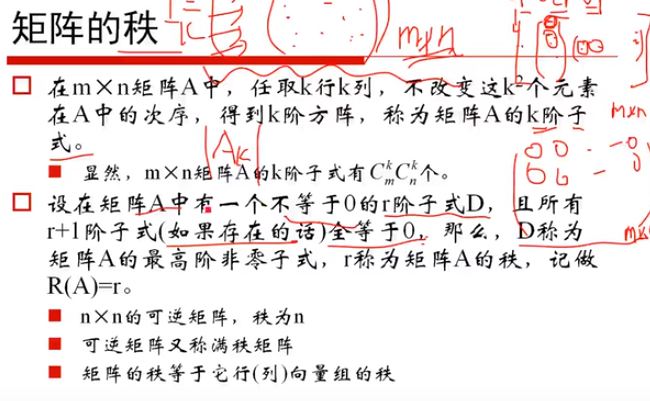 矩阵的秩
m×n
在m×n矩阵A中，任取k行k列，不改变这k²个元素
在A中的次序，得到k阶方阵，称为矩阵A的k阶子
m×n
式。
|Aₖ|
显然，m×n矩阵A的k阶子式有CₘᵏCₙᵏ个。
设在矩阵A中有一个不等于0的r阶子式D，且所有
r+1阶子式(如果存在的话)全等于0，那么，D称为
矩阵A的最高阶非零子式，r称为矩阵A的秩，记做
R(A)=r。
n×n的可逆矩阵，秩为n
可逆矩阵又称满秩矩阵
矩阵的秩等于它行(列)向量组的秩